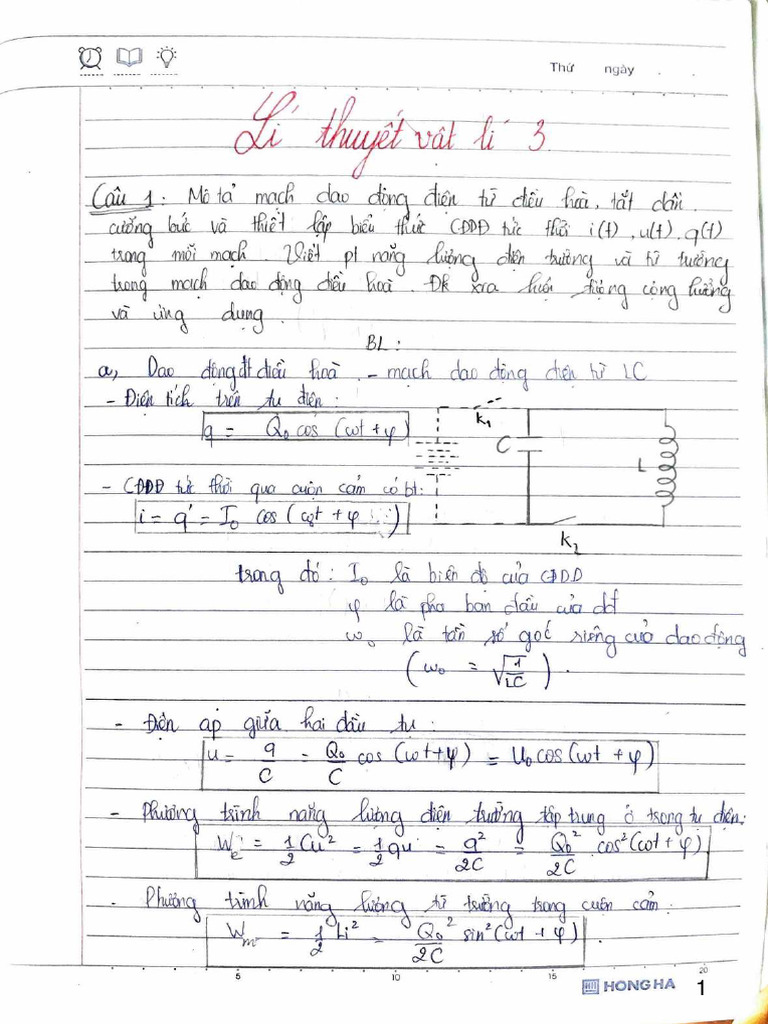 Thứ ngày . .
Lí thuyết vật lí 3
Câu 1: Mô tả mạch dao động điện từ điều hoà, tắt dần,
cưỡng bức và thiết lập biểu thức CĐDĐ tức thời i(t), u(t), q(t)
trong mỗi mạch. Viết pt năng lượng điện trường và từ trường
trong mạch dao động điều hoà. Đk xra hiện tượng cộng hưởng
và ứng dụng.
BL:
a, Dao động đt điều hoà - mạch dao động điện từ LC
- Điện tích trên tụ điện:
q = Q₀ cos (ωt + φ)
k₁
C
L
- CĐDĐ tức thời qua cuộn cảm có bt:
i = q' = I₀ cos (ωt + φ )
k₂
trong đó: I₀ là biên độ của CĐDĐ
φ là pha ban đầu của dđ
ω₀ là tần số góc riêng của dao động
(ω₀ = √(1/LC)).
- Điện áp giữa hai đầu tụ:
u = q/C = Q₀/C cos (ωt + φ) = U₀ cos (ωt + φ)
- Phương trình năng lượng điện trường tập trung ở trong tụ điện:
Wₑ = 1/2 Cu² = 1/2 qu = q²/2C = Q₀²/2C cos² (ωt + φ)
- Phương trình năng lượng từ trường trong cuộn cảm:
Wₘ = 1/2 Li² = Q₀²/2C sin² (ωt + φ).
5 10 15 20
HONG HA 1